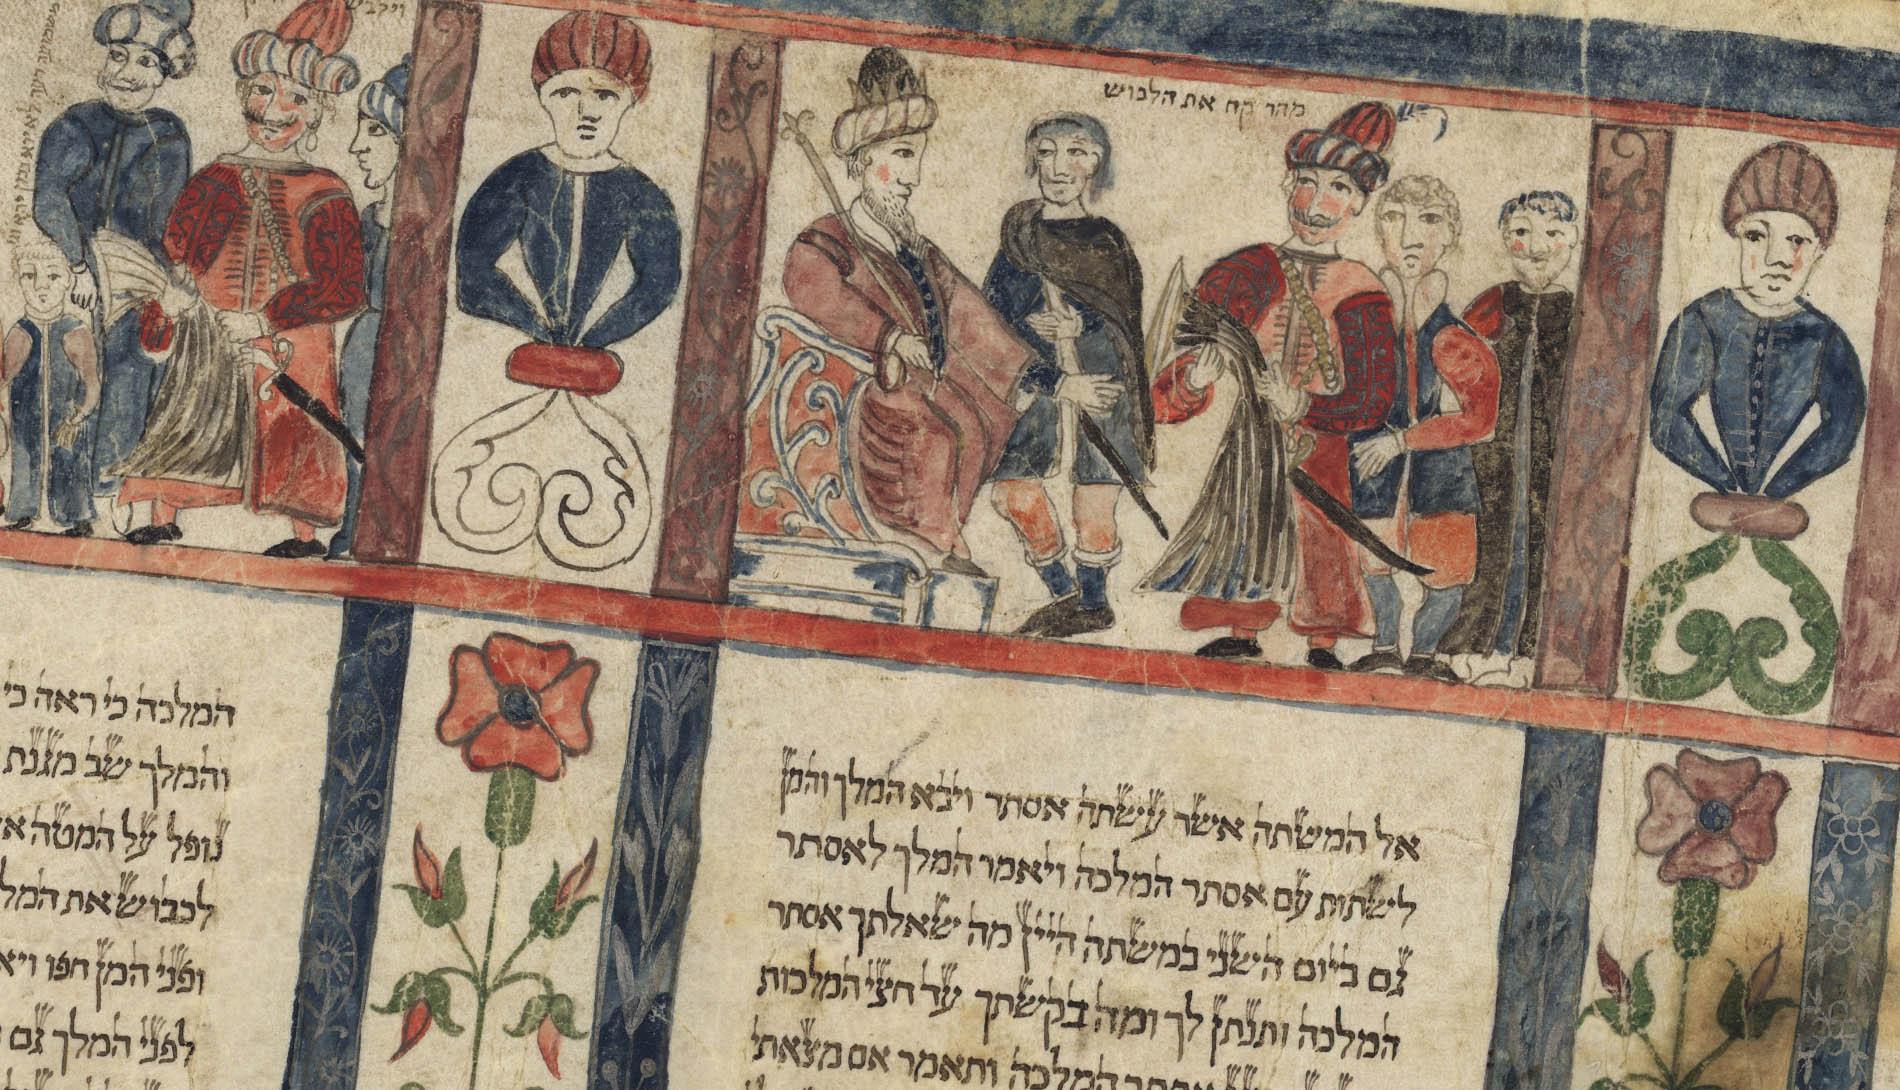 מהר קח את הלבוש
וילבש
אל המשתה אשר עשתה אסתר ויבא המלך והמן
לשתות עם אסתר המלכה ויאמר המלך לאסתר
גם ביום השני במשתה היין מה שאלתך אסתר
המלכה ותנתן לך ומה בקשתך עד חצי המלכות
אסתר המלכה ותאמר אם מצאתי
המלכה כי ראה כי
והמלך שב מגנת
נופל על המטה א
לכבוש את המל
ופני המן חפו ויא
לפני המלך גם